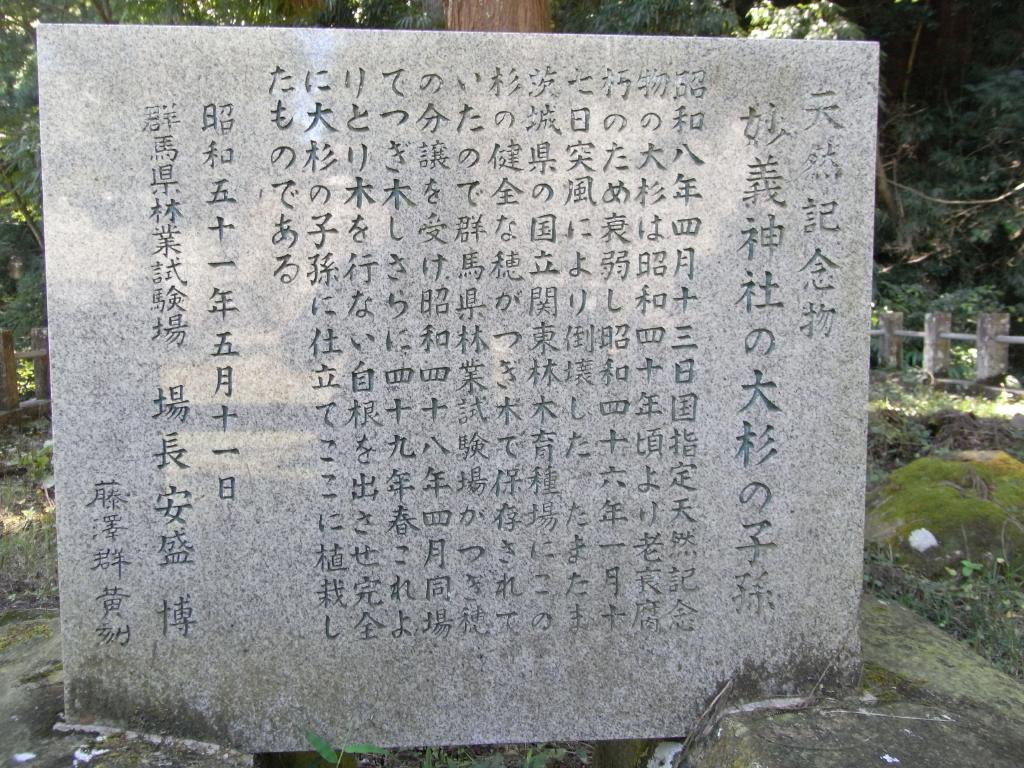 天然記念物
妙義神社の大杉の子孫
昭和八年四月十三日国指定天然記念
物の大杉は昭和四十年頃より老衰腐
朽のため衰弱し昭和四十六年一月十
七日突風により倒壊した たまたま
茨城県の国立関東林木育種場にこの
杉の健全な穂がつぎ木で保存されて
いたので群馬県林業試験場がつぎ穂
の分譲を受け昭和四十八年四月同場
てつぎ木しさらに四十九年春これよ
りとり木を行ない自根を出させ完全
に大杉の子孫に仕立てここに植栽し
たものである
昭和五十一年五月十一日
群馬県林業試験場 場長 安盛 博
藤澤群黄刻